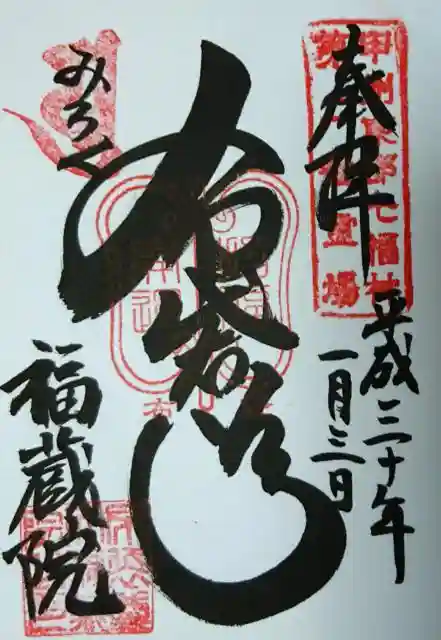 奉拝
甲州東郡七福神
霊場
平成三十年
一月三日
布袋尊
みろく
福蔵院